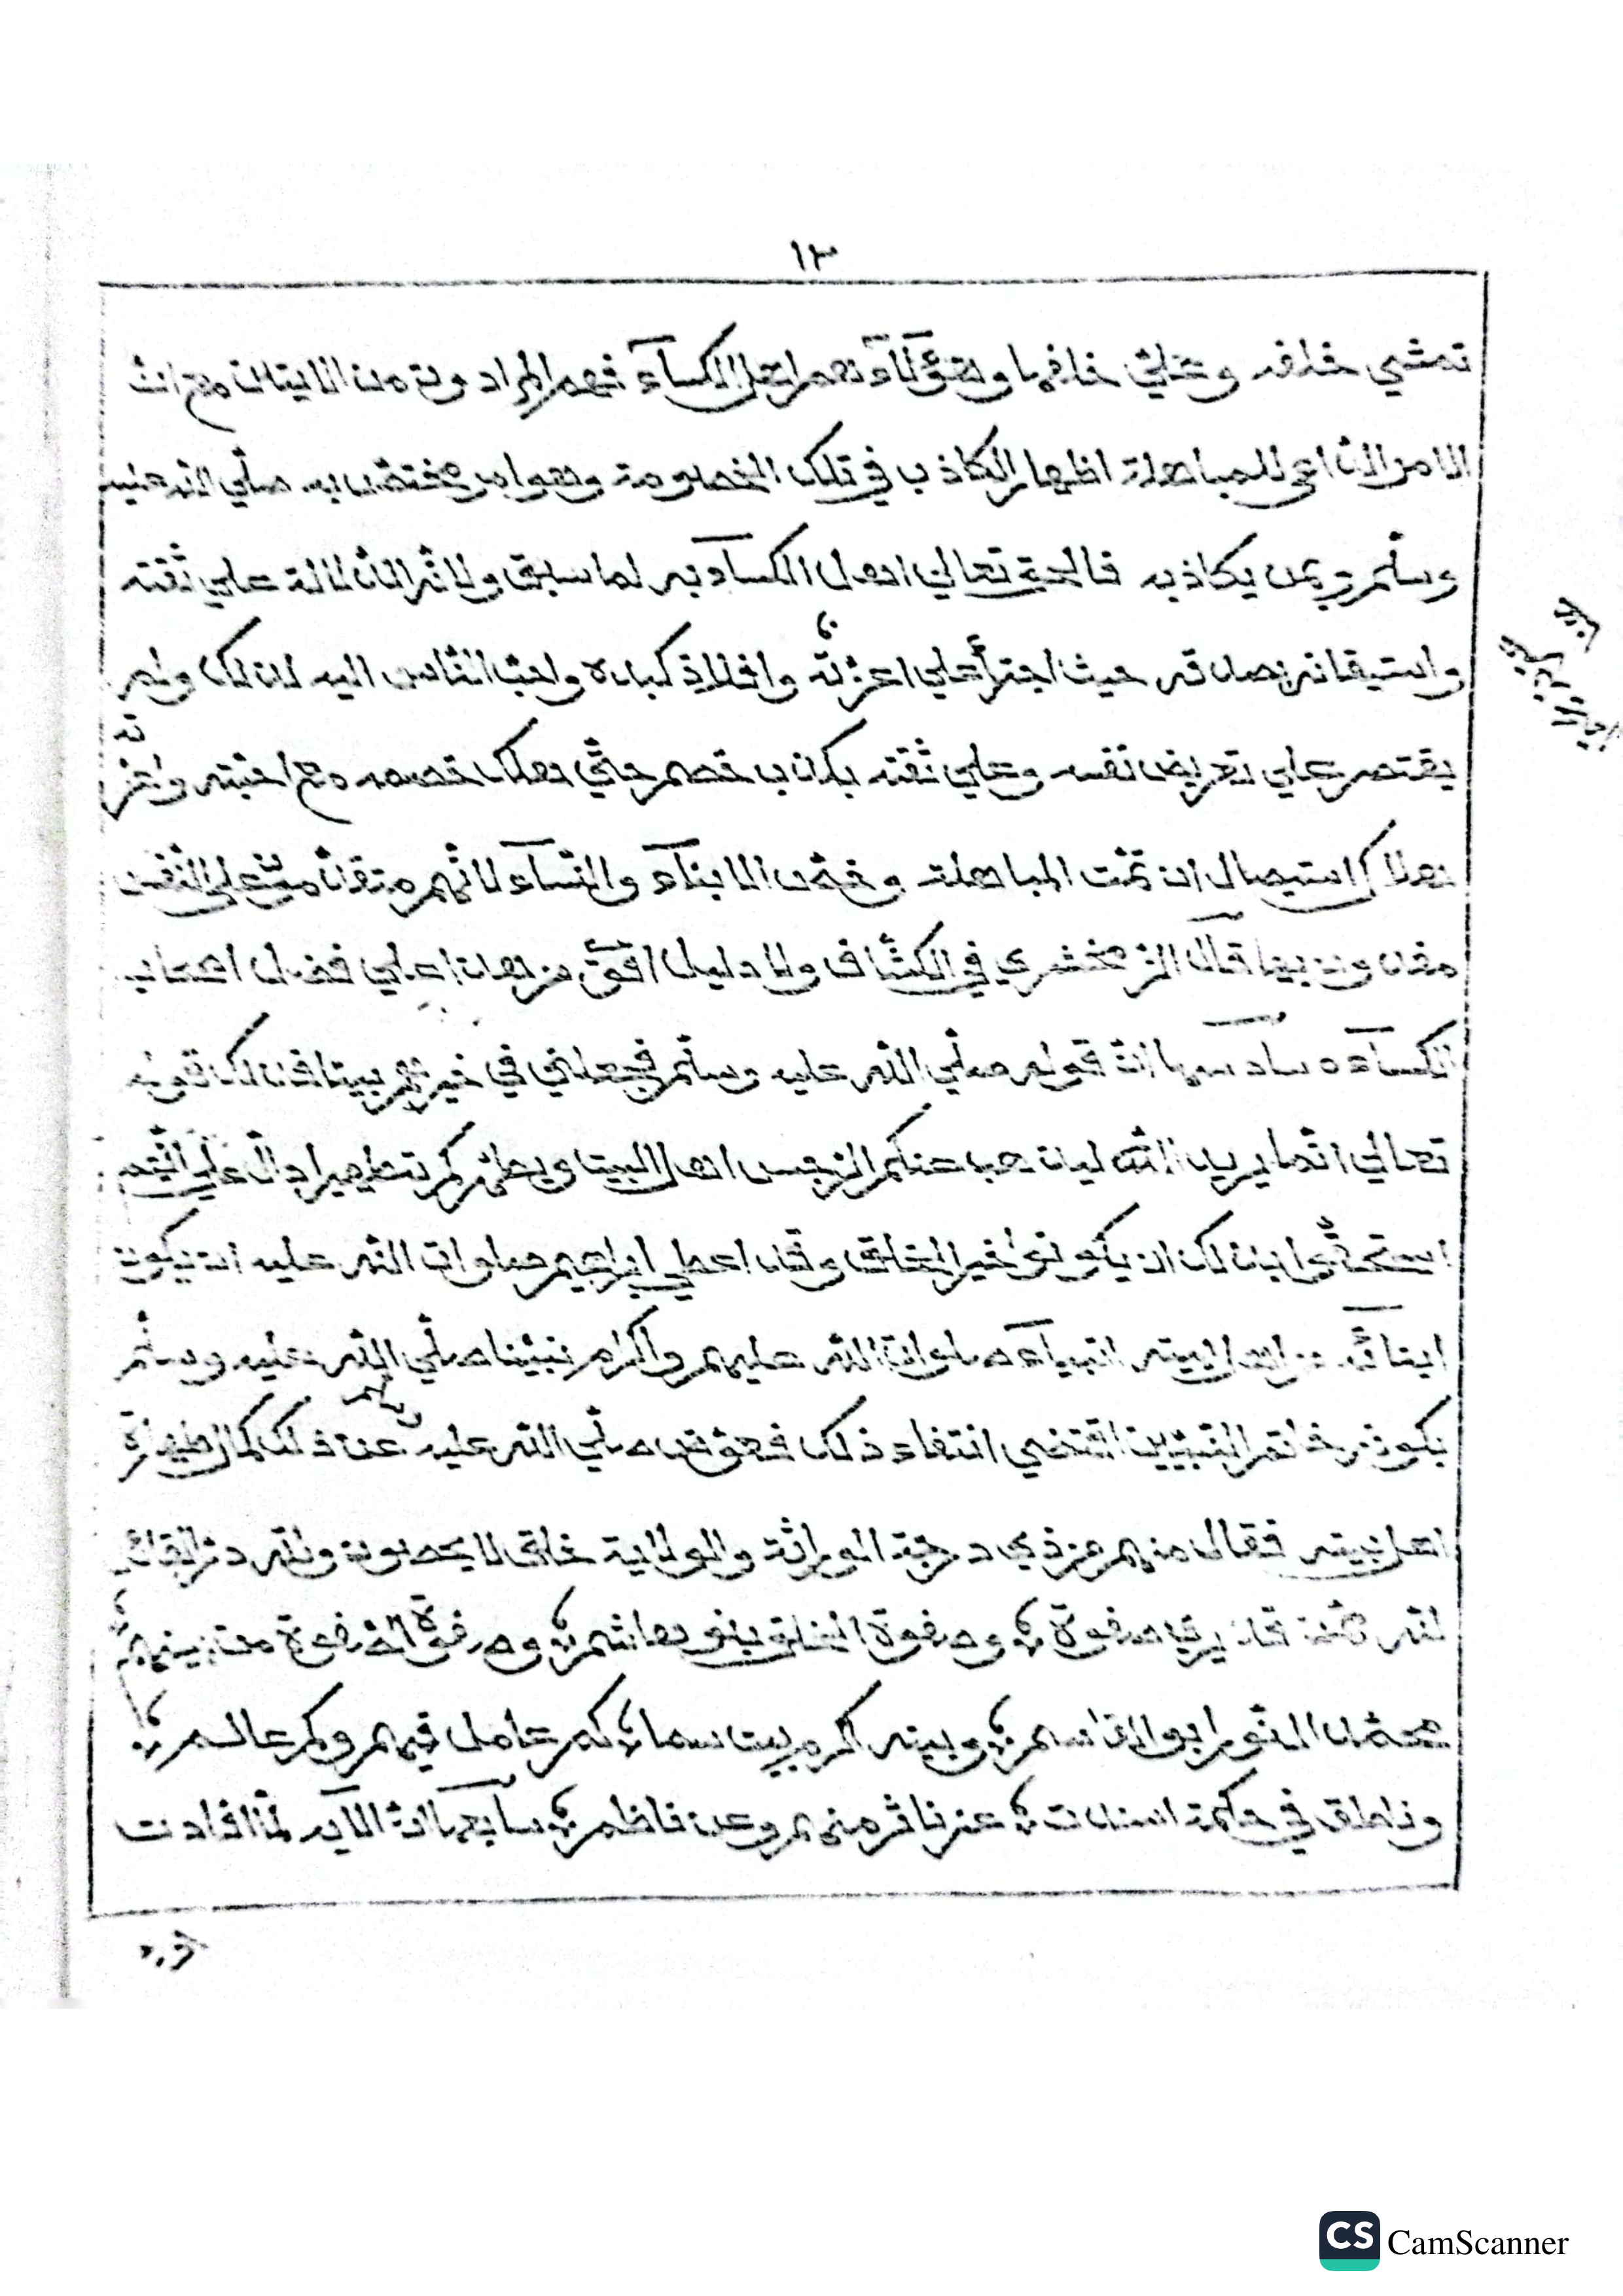 ١٣
تمشي خلفه وعلي خلفها وهؤلاء هم اهل الكساء فهم المراد ون من الايتان مع ان
الامر الداعي للمباهلة اظهار الكاذب في تلك الخصومة وهو امر مختص به صلي الله عليه
وسلم وبمن يكاذبه فالحق تعالي اهل الكساء به لما سبق ولانه الدلالة علي ثقته
واستيقانه بصدقه حيث اجترأ علي اعزته وافلاذ كبده واحب الناس اليه لذلك ولم
يقتصر علي تعريض نفسه وعلي ثقته بكذب خصم حتي يهلك خصمه مع احبته واعزته
هلاك استيصال ان تمت المباهلة وخص الابناء والنساء لانهم مقدم علي النفس
مفدون بها قال الزمخشري في الكشاف ولا دليل اقوي من هذا علي فضل اصحاب
الكساء ه سادسها ان قوله صلي الله عليه وسلم فجعلني في خيرهم بيتا فذلك قوله
تعالي انما يريد الله ليذهب عنكم الرجس اهل البيت ويطهركم تطهيرا دال علي انهم
استحقوا بذلك ان يكونوا خير الخلق وقد اعطي ابراهيم صلوات الله عليه ان يكون
ابنائه من اهل بيته انبياء صلوات الله عليهم واكرام نبينا صلي الله عليه وسلم
بكونه خاتم النبيين اقتضي انتفاء ذلك فعوض صلي الله عليه وسلم عن ذلك كمال طهارة
اهل بيته فقال منهم عز ذي درجة الوراثة والولاية خلق لا يحصون ولله در القائل
لله من قد برا صفوة وصفوة الخلق بنو هاشم وصفوة الصفوة من بينهم
محمد النور ابو القاسم وبيته اكرم بيت سما كم عامل فيهم وكم عالم
وناطق في حكمة اسندت عن ناثر منهم وعن ناظم سابعها ان الآية لما افادت